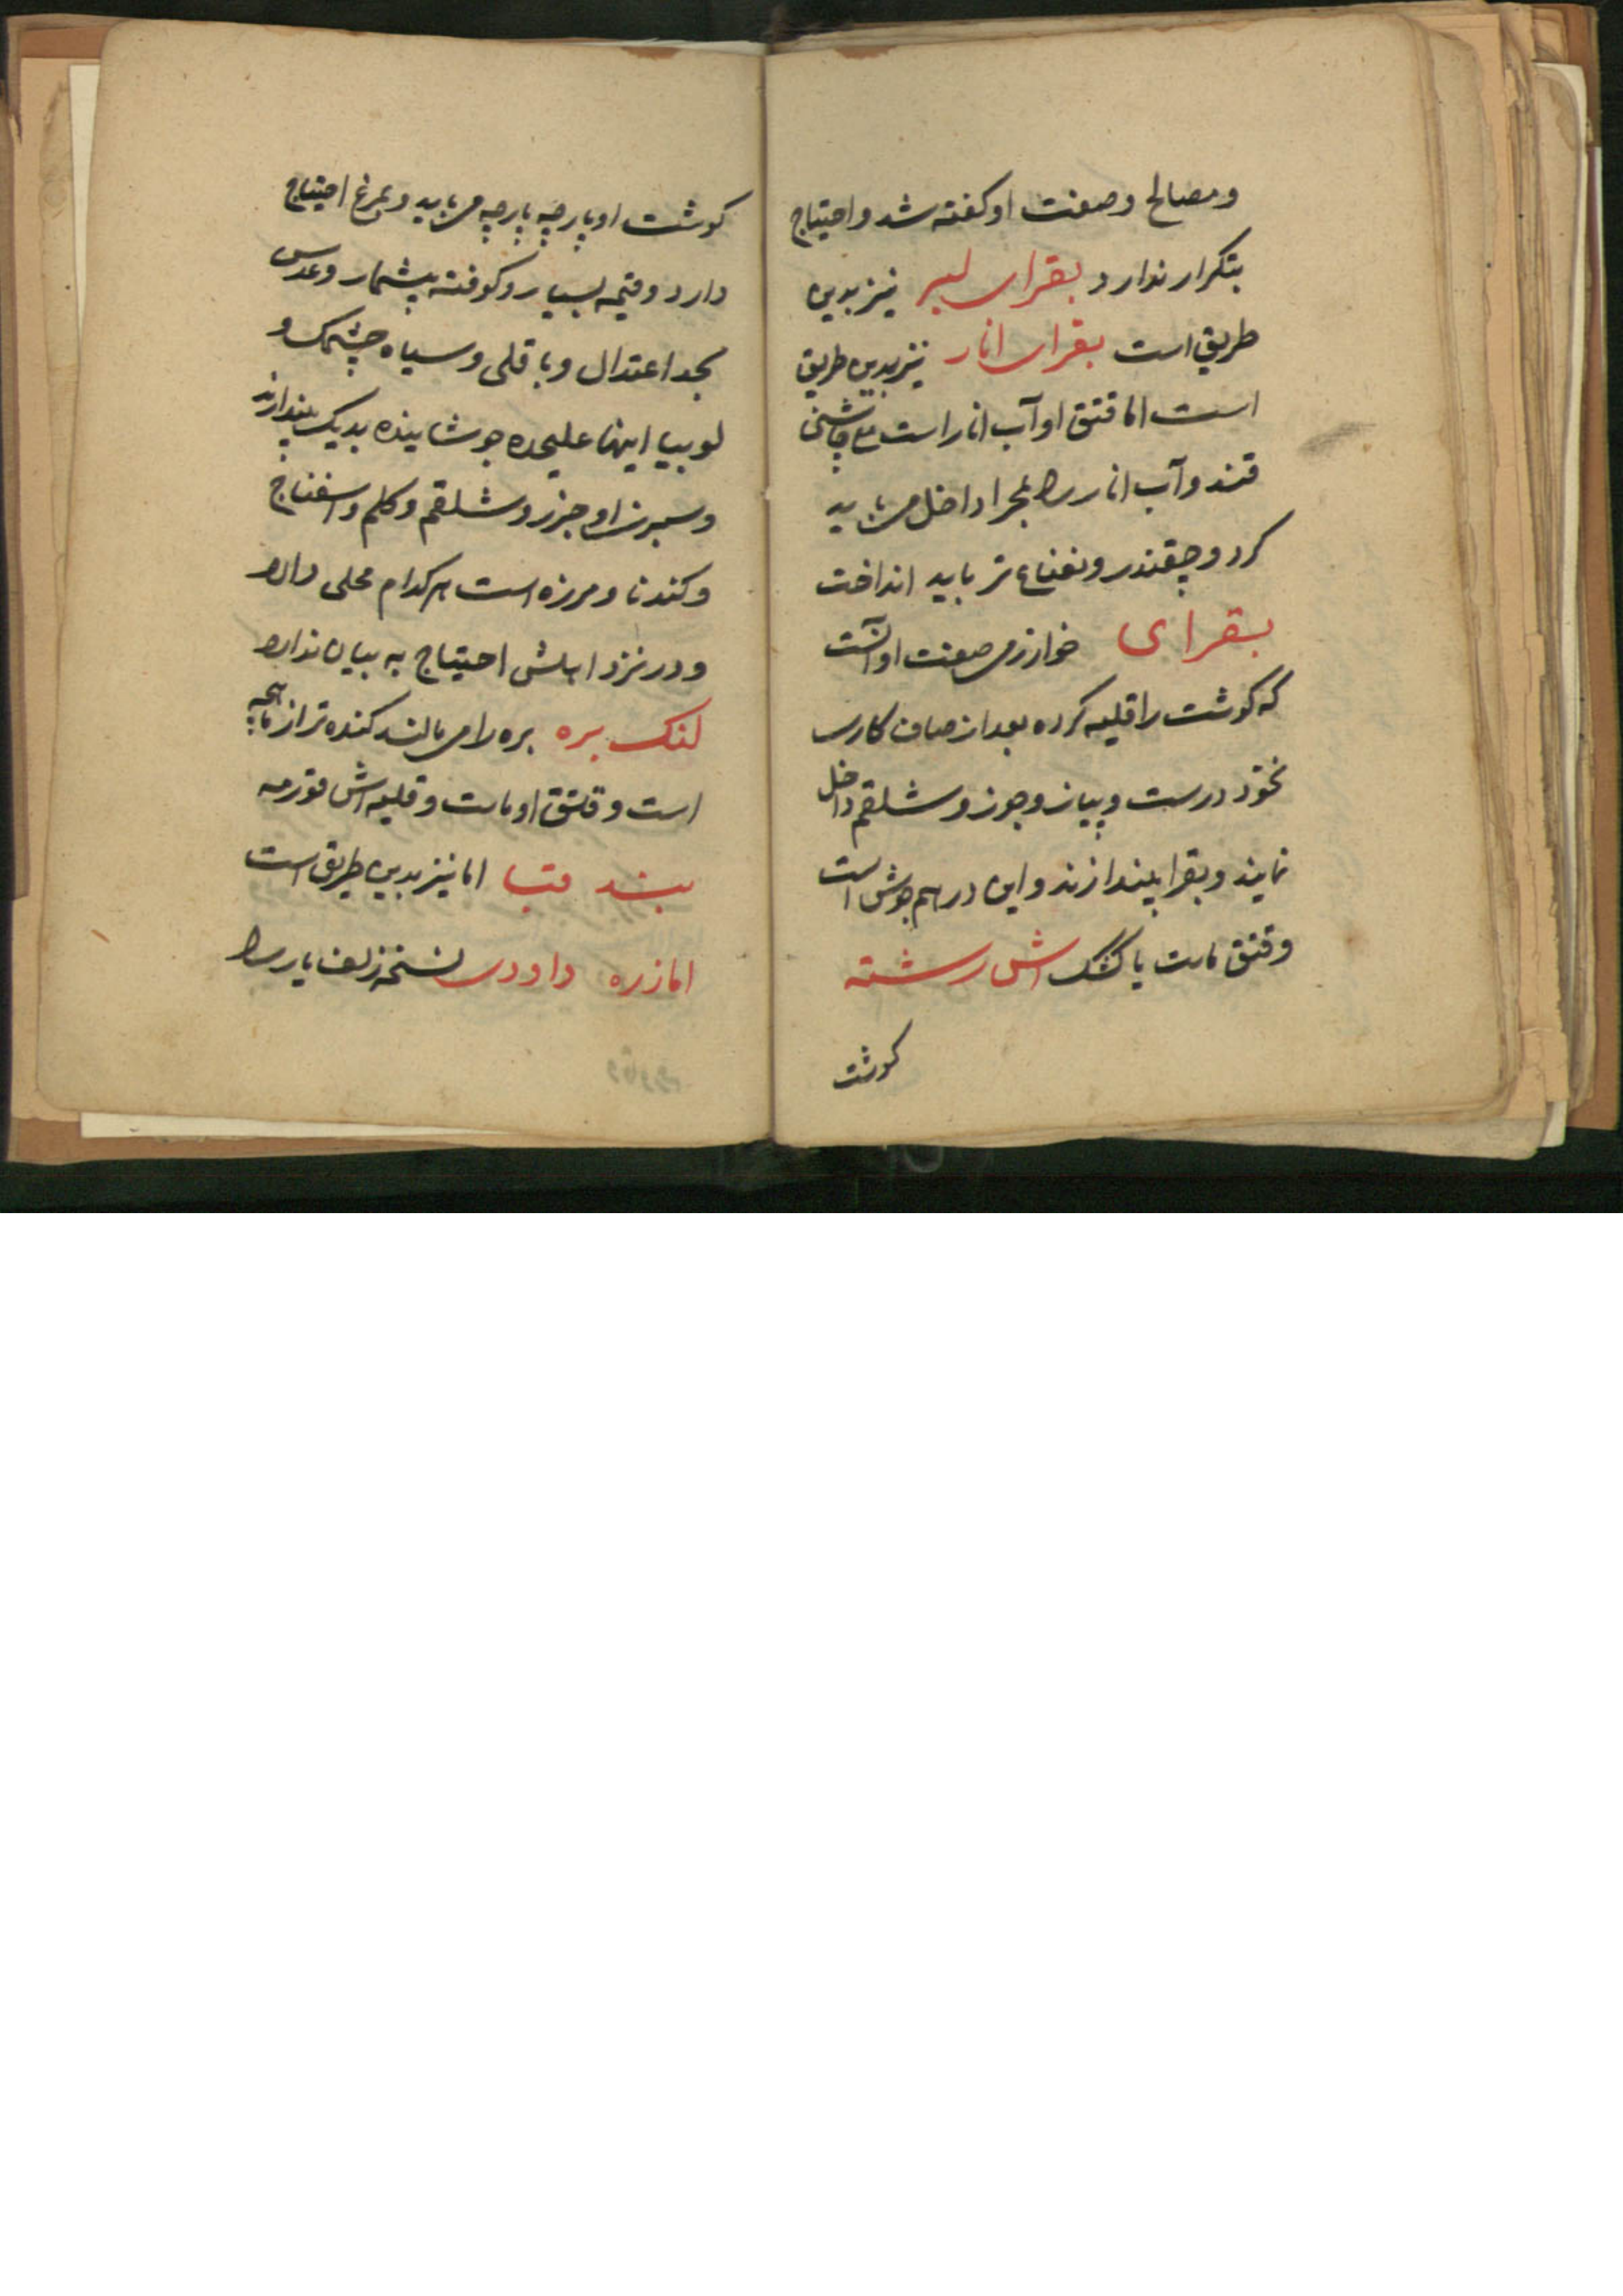 ومصالح وصفت او کفته شد و احتیاج
بتکرار ندارد بقرای سیر نیز بدین
طریق است بقرای انار نیز بدین طریق
است اما قتق او آب انار است مع چاشنی
قند و آب انار را مجرا داخل می باید
کرد و چقندر و نعناع تر باید انداخت
بقرای خوارزمی صفت او آنست
که کوشت را قلیه کرده بعد از صاف کاری
نخود درست و پیاز و جوز و شلقم داخل
نمایند و بقرا بیندازند و این در هم جوش است
و قتق ماست یا کشک اش رشته
کوشت
کوشت او پارچه پارچه می باید و بمرغ احتیاج
دارد و قیمه بسیار و کوفته بیشمار و عدس
بحد اعتدال و باقلی و سیاه چشمک و
لوبیا اینها علیحده جوشانیده بدیک بیندازند
و سبزی او جزر و شلقم و کلم و اسفناج
و کندنا و مرزه است هر کدام محلی دارد
و در نزد اهلش احتیاج به بیان ندارد
لنک بره بره را می مالند کنده تر از ماهیچه
است و قلتق او ماست و قلیه اش قورمه
بند قبا اما نیز بدین طریق است
اما زره داودی نسخه زلف یار را